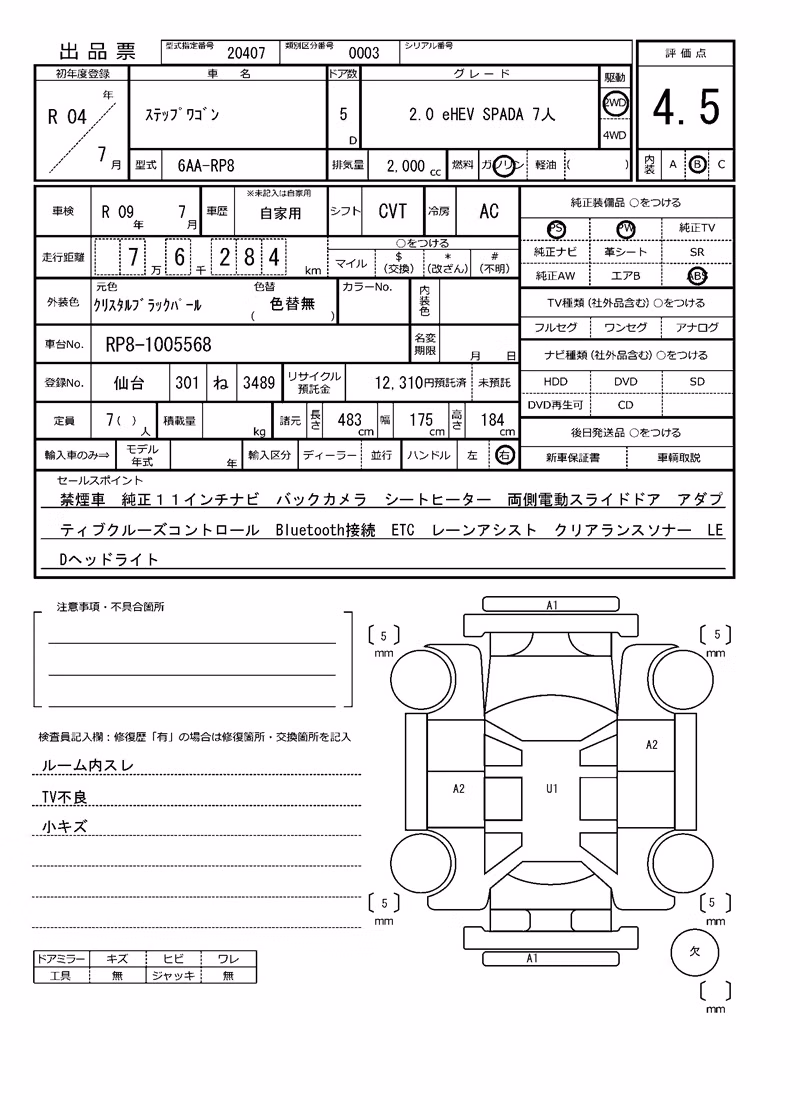 出品票 型式指定番号 20407 類別区分番号 0003 シリアル番号
評価点
初年度登録 車名 ドア数 グレード 駆動
R 04 年 7 月 ｽﾃｯﾌﾟﾜｺﾞﾝ 5 D 2.0 eHEV SPADA 7人 2WD 4WD
4.5
型式 6AA-RP8 排気量 2,000 cc 燃料 ガソリン 軽油 ( )
内装 A B C
車検 R 09 年 7 月 車歴 ※未記入は自家用 自家用 シフト CVT 冷房 AC
純正装備品 ○をつける
PS PW 純正TV
純正ナビ 革シート SR
純正AW エアB ABS
走行距離 7 万 6 千 2 8 4 km
○をつける
マイル $ (交換) * (改ざん) # (不明)
外装色 元色 ｸﾘｽﾀﾙﾌﾞﾗｯｸﾊﾟｰﾙ 色替 ( 色替無 ) カラーNo. 内装色
TV種類(社外品含む) ○をつける
フルセグ ワンセグ アナログ
車台No. RP8-1005568 名変期限 月 日
ナビ種類(社外品含む) ○をつける
HDD DVD SD
DVD再生可 CD
登録No. 仙台 301 ね 3489 リサイクル預託金 12,310円預託済 未預託
定員 7( ) 人 積載量 kg 諸元 長さ 483 cm 幅 175 cm 高さ 184 cm
後日発送品 ○をつける
新車保証書 車輌取説
輸入車のみ⇒ モデル年式 年 輸入区分 ディーラー 並行 ハンドル 左 右
セールスポイント
禁煙車 純正１１インチナビ バックカメラ シートヒーター 両側電動スライドドア アダプ
ティブクルーズコントロール Bluetooth接続 ETC レーンアシスト クリアランスソナー LE
Dヘッドライト
注意事項・不具合箇所
検査員記入欄：修復歴「有」の場合は修復箇所・交換箇所を記入
ルーム内スレ
TV不良
小キズ
ドアミラー キズ ヒビ ワレ
工具 無 ジャッキ 無
A1
[ 5 ] mm
[ 5 ] mm
A2
A2
U1
[ 5 ] mm
[ 5 ] mm
A1
欠
[ ] mm